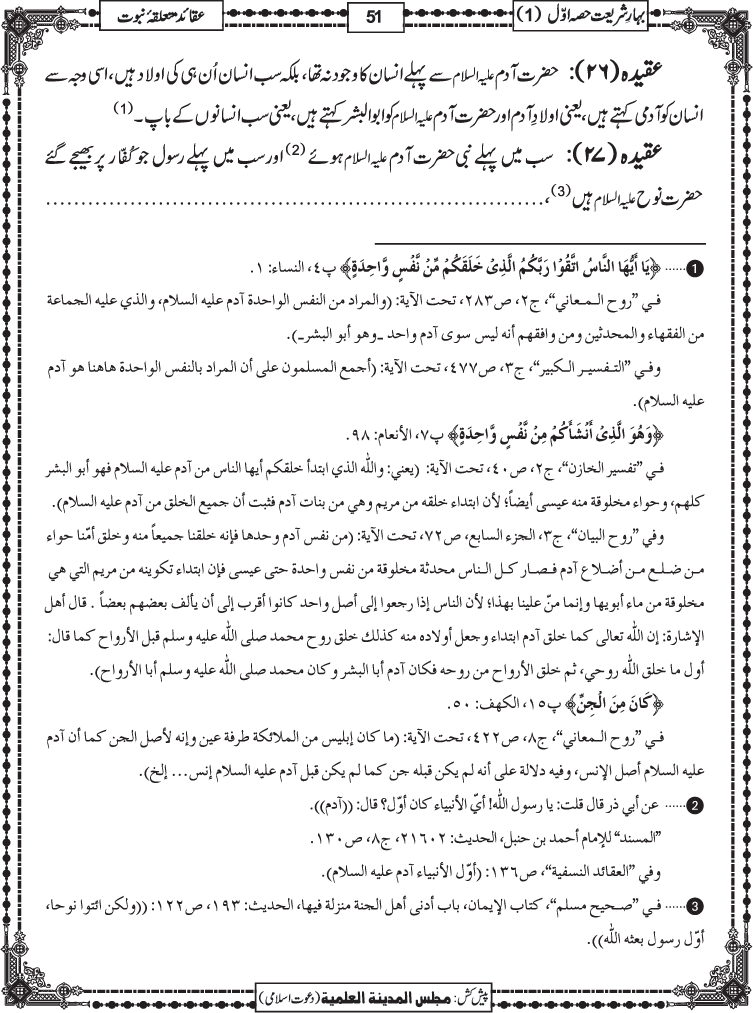 بہارِ شریعت حصہ اوّل (1)
51
عقائد متعلقۂ نبوت
عقیدہ (۲۶): حضرت آدم علیہ السلام سے پہلے انسان کا وجود نہ تھا، بلکہ سب انسان اُن ہی کی اولاد ہیں، اسی وجہ سے
انسان کو آدمی کہتے ہیں، یعنی اولادِ آدم اور حضرت آدم علیہ السلام کو ابو البشر کہتے ہیں، یعنی سب انسانوں کے باپ۔ (1)
عقیدہ (۲۷): سب میں پہلے نبی حضرت آدم علیہ السلام ہوئے (2) اور سب میں پہلے رسول جو کُفّار پر بھیجے گئے
حضرت نوح علیہ السلام ہیں (3)، ......................................................................
1 ...... ﴿یَا أَیُّهَا النَّاسُ اتَّقُوْا رَبَّكُمُ الَّذِیْ خَلَقَكُمْ مِّنْ نَّفْسٍ وَّاحِدَةٍ﴾ پ٤، النساء: ١.
فـي ”روح الـمـعاني“، ج٢، ص٢٨٣، تحت الآية: (والمراد من النفس الواحدة آدم عليه السلام، والذي عليه الجماعة
من الفقهاء والمحدثين ومن وافقهم أنه ليس سوى آدم واحد ـ وهو أبو البشر ـ).
وفـي ”التـفـسيـر الـكبير“، ج٣، ص٤٧٧، تحت الآية: (أجمع المسلمون على أن المراد بالنفس الواحدة هاهنا هو آدم
عليه السلام).
﴿وَهُوَ الَّذِیْ أَنْشَأَكُمْ مِنْ نَّفْسٍ وَّاحِدَةٍ﴾ پ٧، الأنعام: ٩٨.
فـي ”تفسير الخازن“، ج٢، ص٤٠، تحت الآية: (يعني: واللّٰه الذي ابتدأ خلقكم أيها الناس من آدم عليه السلام فهو أبو البشر
كلهم، وحواء مخلوقة منه عيسى أيضاً؛ لأن ابتداء خلقه من مريم وهي من بنات آدم فثبت أن جميع الخلق من آدم عليه السلام).
وفي ”روح البيان“، ج٣، الجزء السابع، ص٧٢، تحت الآية: (من نفس آدم وحدها فإنه خلقنا جميعاً منه وخلق أمّنا حواء
مـن ضـلـع مـن أضـلاع آدم فـصـار كـل الـناس محدثة مخلوقة من نفس واحدة حتى عيسى فإن ابتداء تكوينه من مريم التي هي
مخلوقة من ماء أبويها وإنما منّ علينا بهذا؛ لأن الناس إذا رجعوا إلى أصل واحد كانوا أقرب إلى أن يألف بعضهم بعضاً . قال أهل
الإشارة: إن اللّٰه تعالى كما خلق آدم ابتداء وجعل أولاده منه كذلك خلق روح محمد صلى اللّٰه عليه وسلم قبل الأرواح كما قال:
أول ما خلق اللّٰه روحي، ثم خلق الأرواح من روحه فكان آدم أبا البشر وكان محمد صلى اللّٰه عليه وسلم أبا الأرواح).
﴿كَانَ مِنَ الْجِنِّ﴾ پ١٥، الكهف: ٥٠.
فـي ”روح الـمعاني“، ج٨، ص٤٢٢، تحت الآية: (ما كان إبليس من الملائكة طرفة عين وإنه لأصل الجن كما أن آدم
عليه السلام أصل الإنس، وفيه دلالة على أنه لم يكن قبله جن كما لم يكن قبل آدم عليه السلام إنس... إلخ).
2 ...... عن أبي ذر قال قلت: يا رسول اللّٰه! أيّ الأنبياء كان أوّل؟ قال: ((آدم)).
”المسند“ للإمام أحمد بن حنبل، الحديث: ٢١٦٠٢، ج٨، ص١٣٠.
وفي ”العقائد النسفية“، ص١٣٦: (أوّل الأنبياء آدم عليه السلام).
3 ...... فـي ”صـحيح مسلم“، كتاب الإيمان، باب أدنى أهل الجنة منزلة فيها، الحديث: ١٩٣، ص١٢٢: ((ولكن ائتوا نوحا،
أوّل رسول بعثه اللّٰه)).
پیش کش: مجلس المدینة العلمیة (دعوت اسلامی)